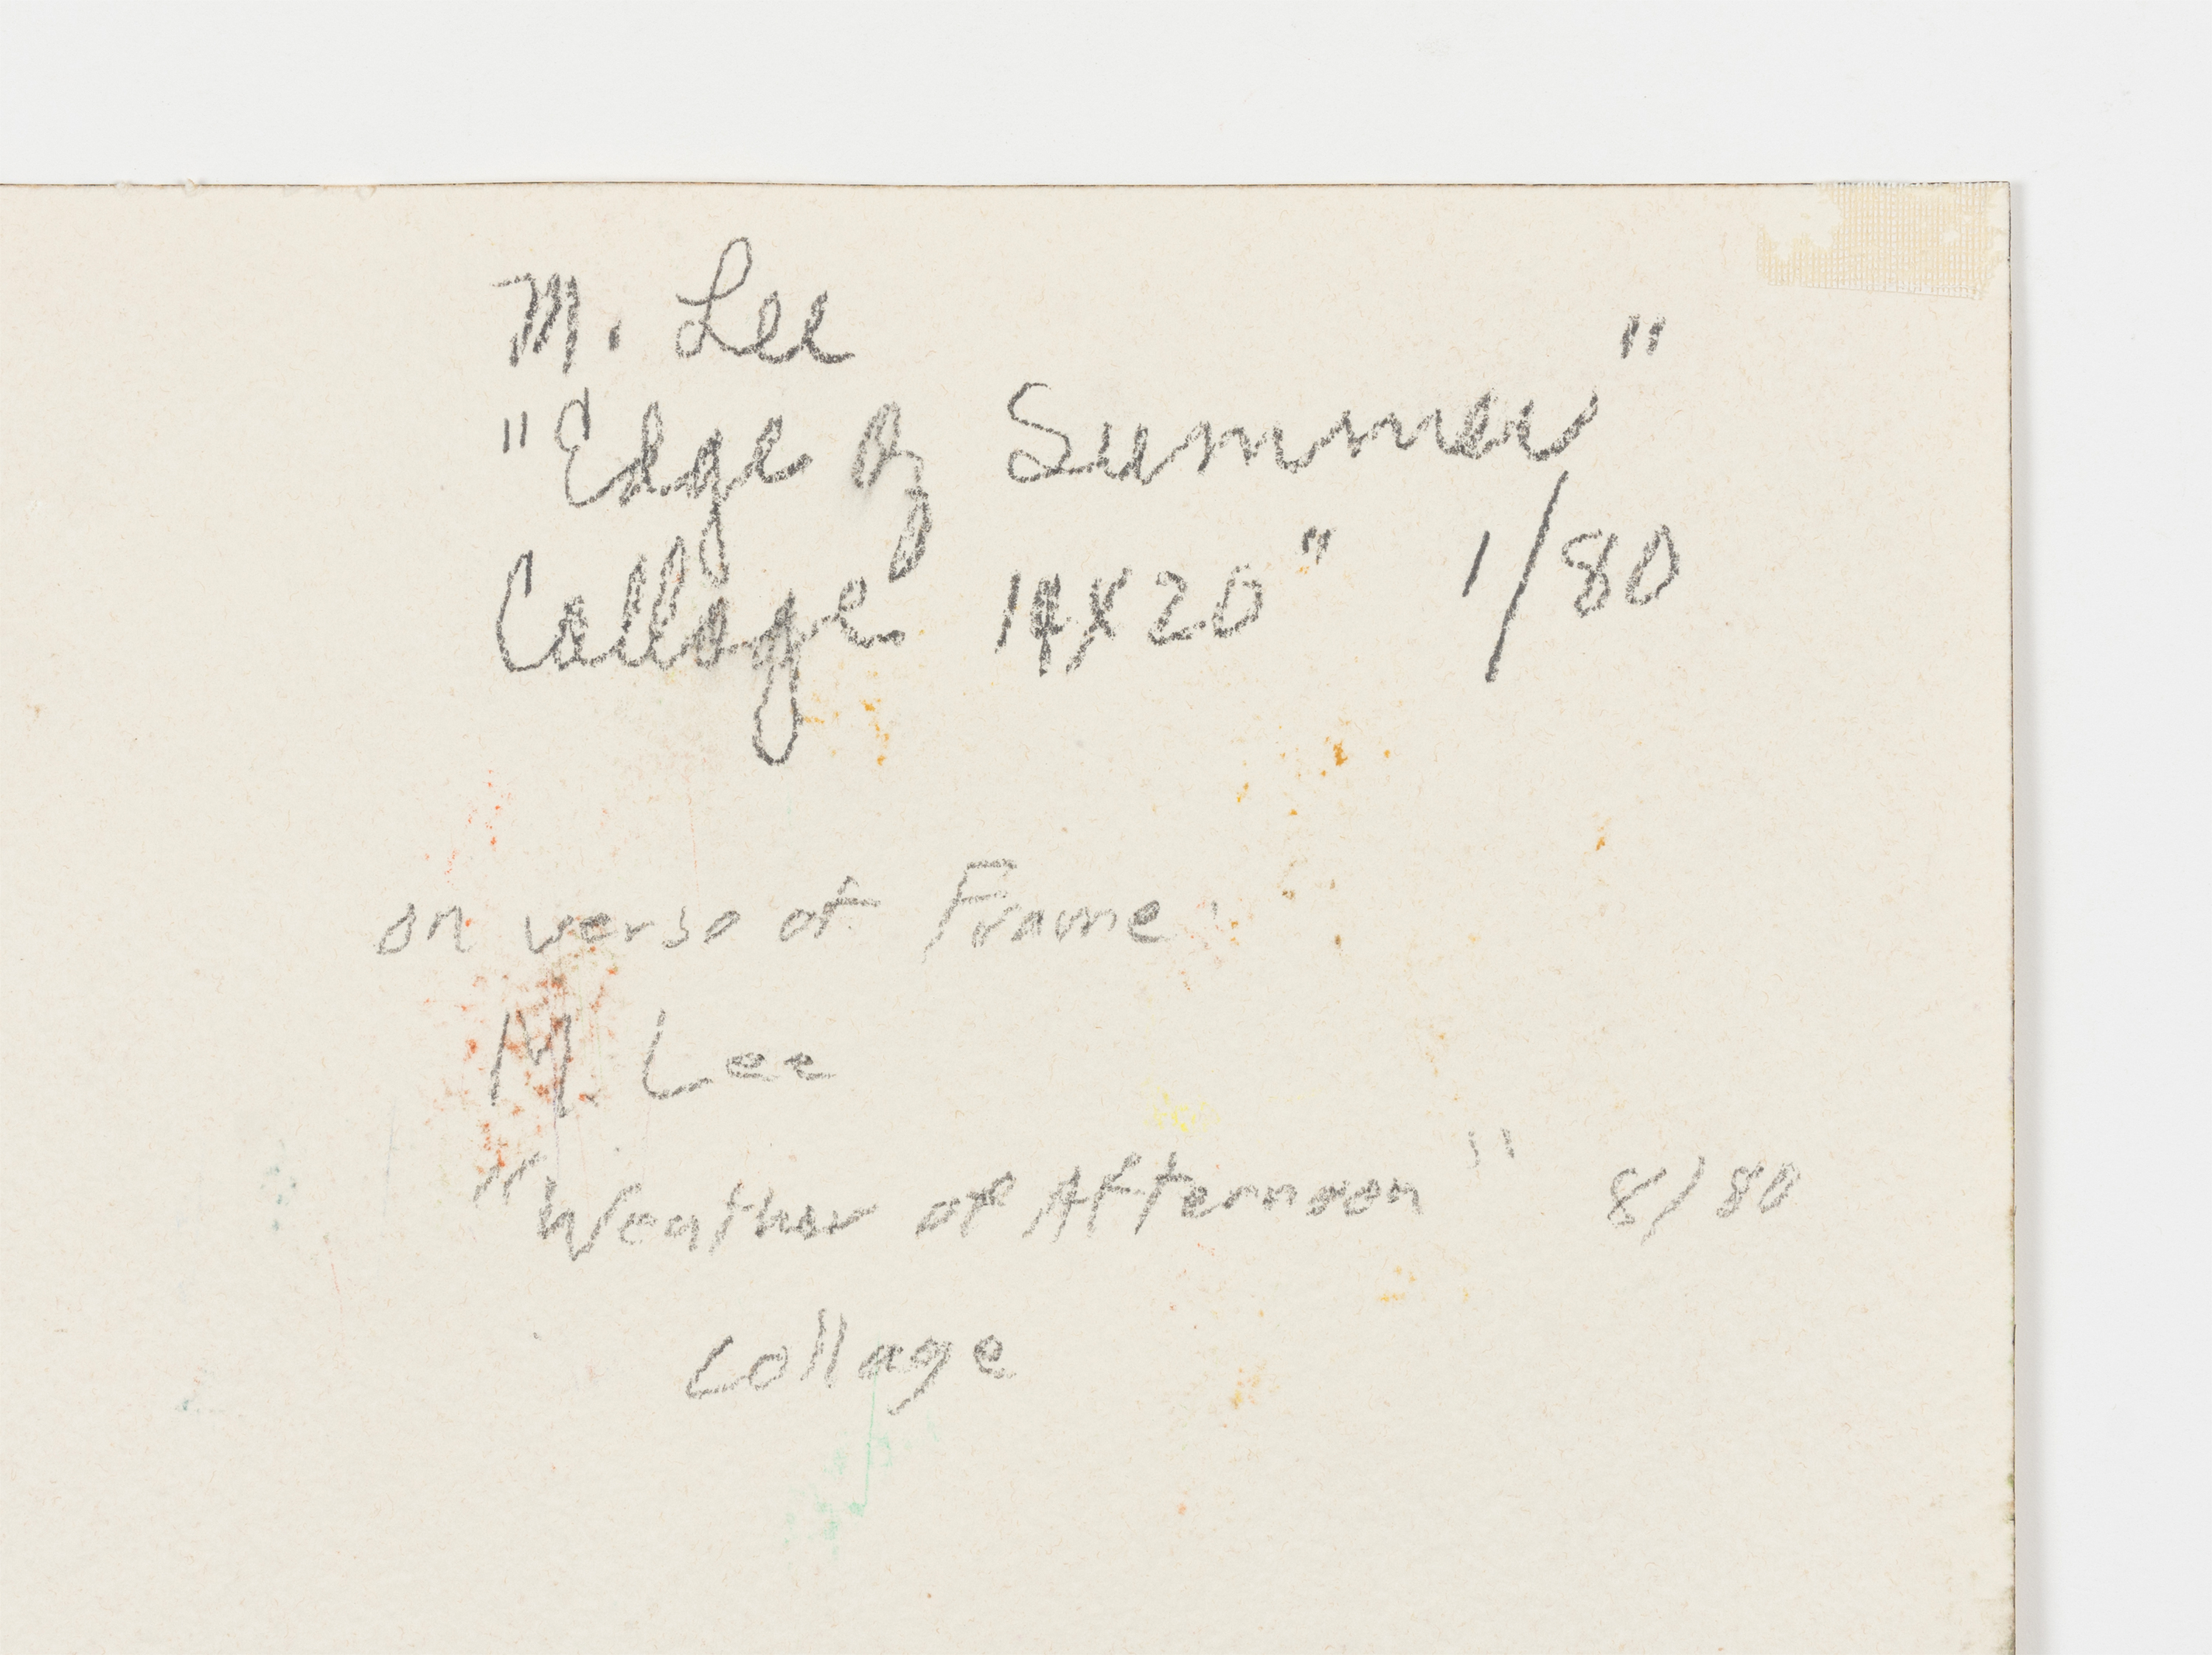 M. Lee
"Edge of Summer"
Collage 14x20" 1/80
on verso of Frame:
M. Lee
"Weather of Afternoon" 8/80
collage